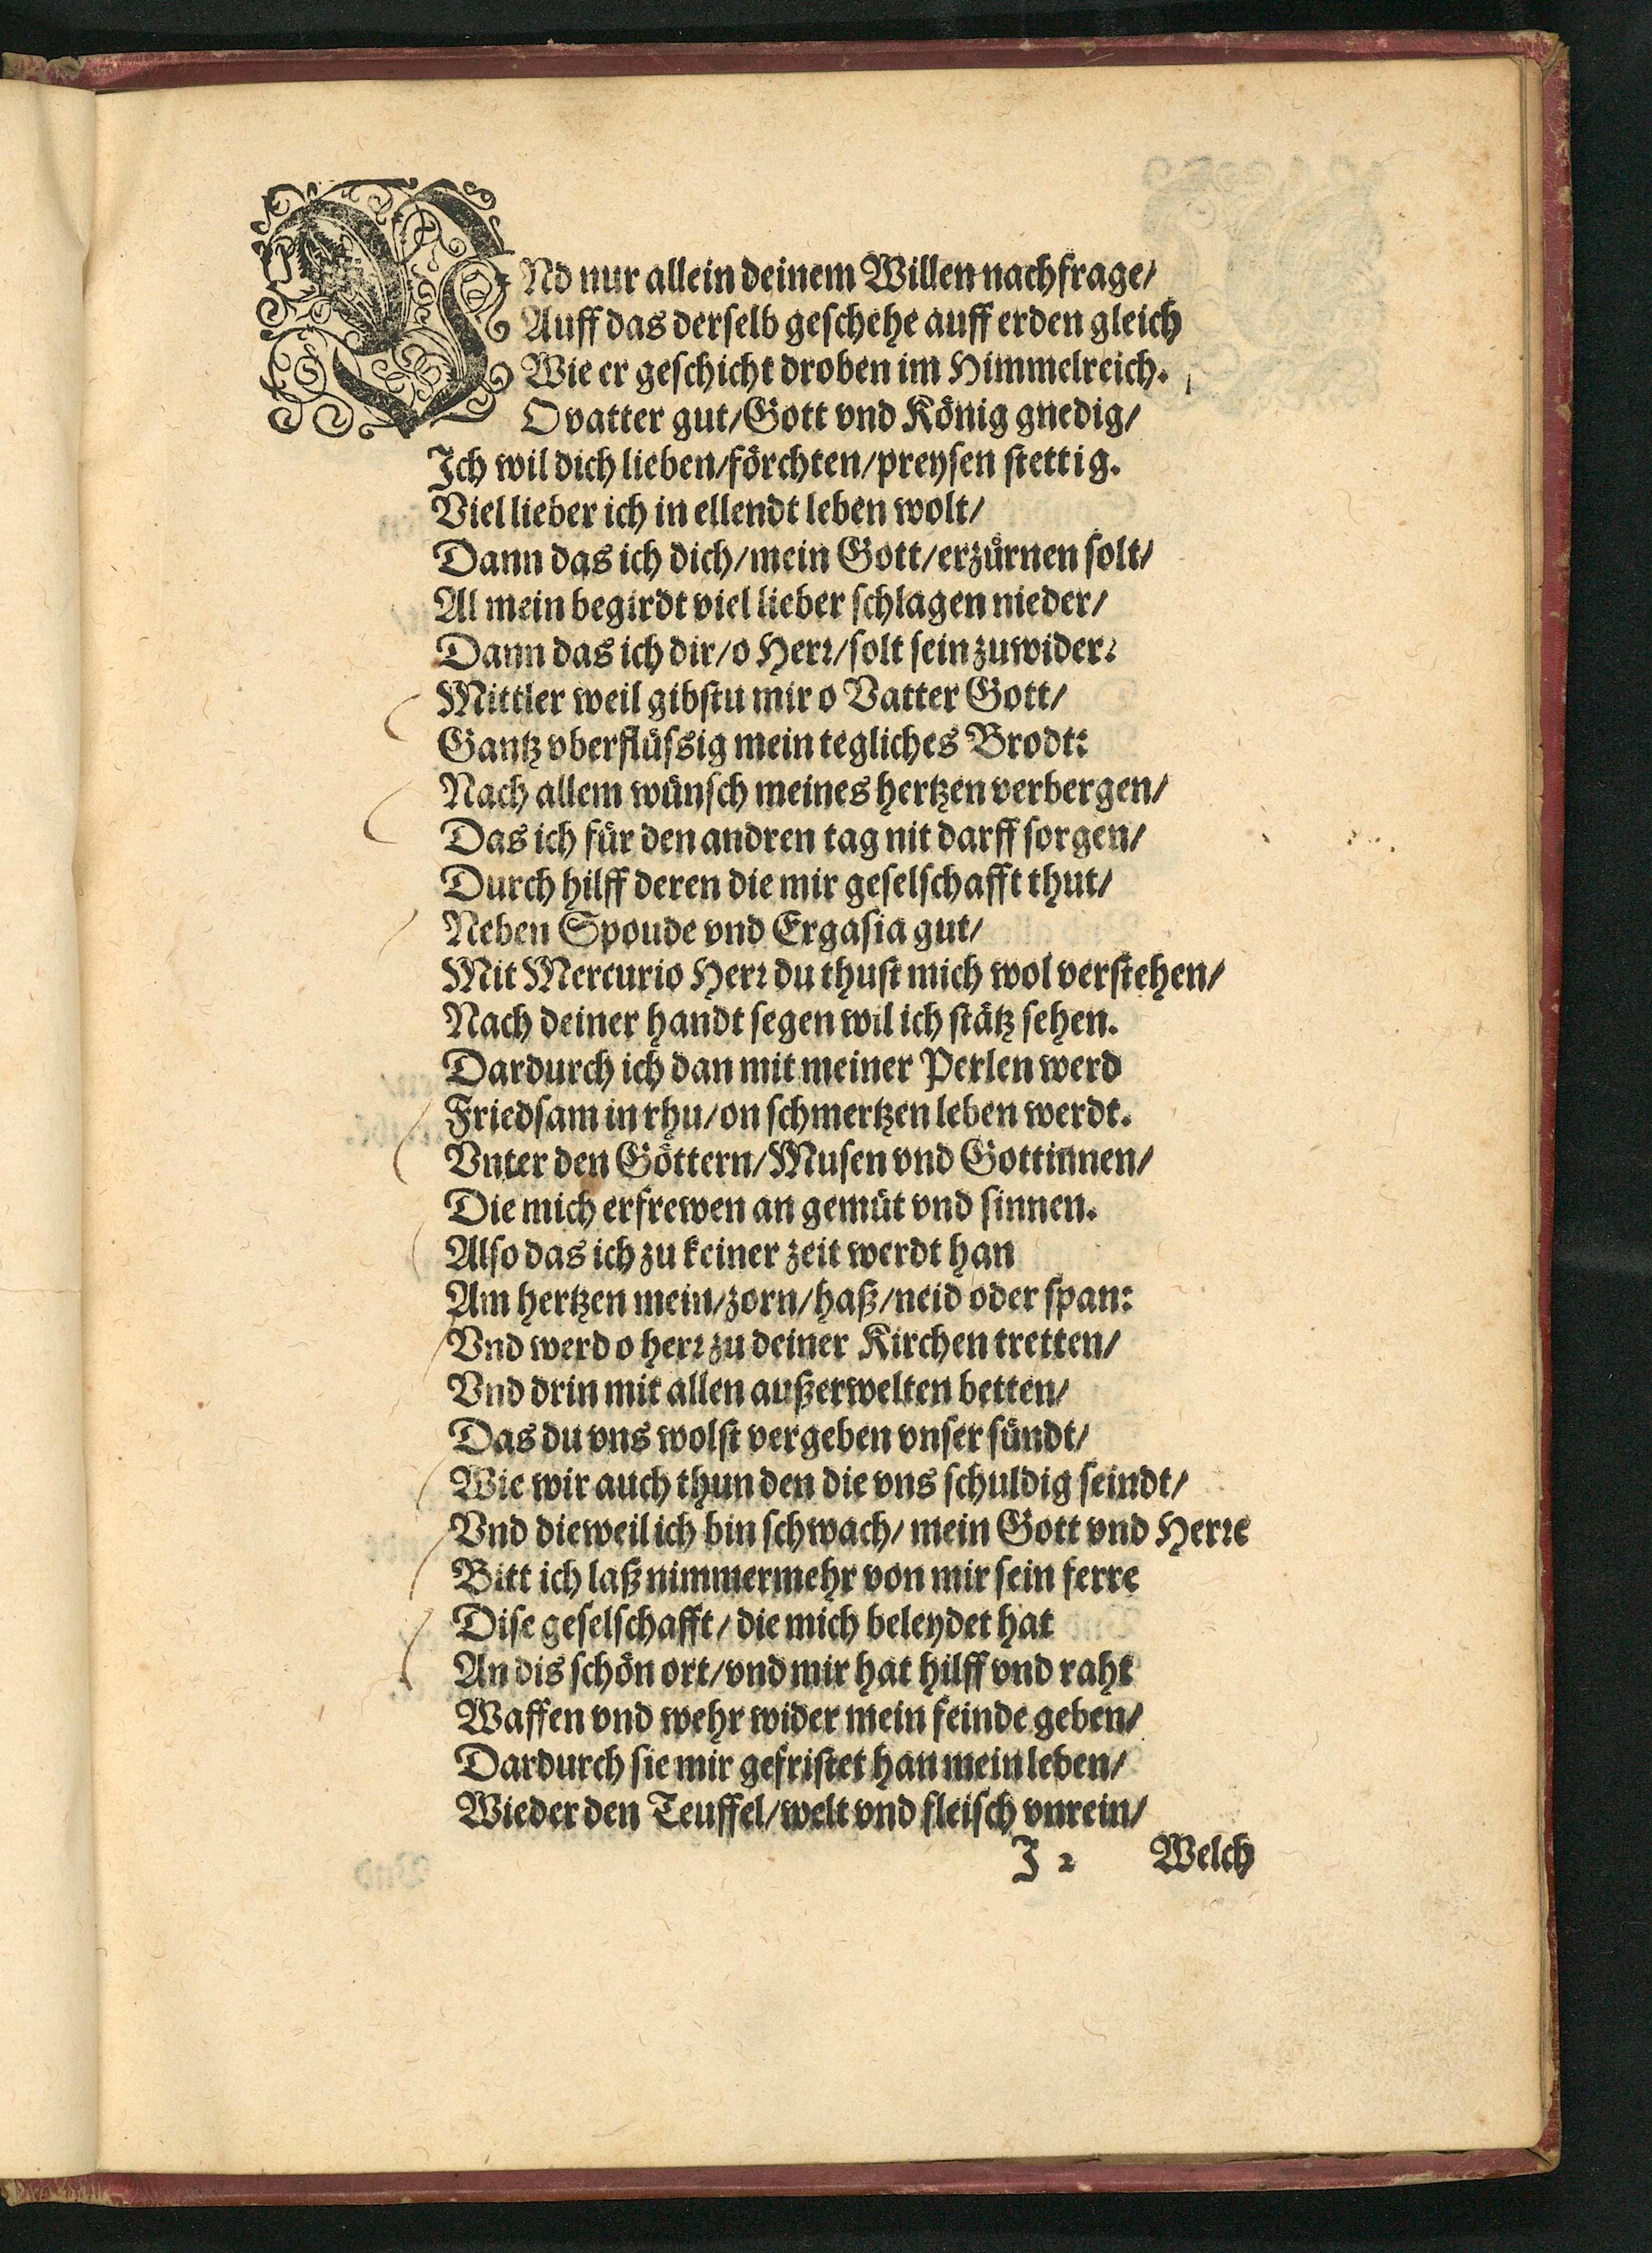 VNd nur allein deinem Willen nachfrage/
Auff das derselb geschehe auff erden gleich
Wie er geschicht droben im Himmelreich.
O vatter gut/Gott vnd König gnedig/
Ich wil dich lieben/förchten/preysen stettig.
Viel lieber ich in ellendt leben wolt/
Dann das ich dich/mein Gott/erzürnen solt/
Al mein begirdt viel lieber schlagen nieder/
Dann das ich dir/o Herr/solt sein zuwider:
Mittler weil gibstu mir o Vatter Gott/
Gantz vberflüssig mein tegliches Brodt:
Nach allem wünsch meines hertzen verbergen/
Das ich für den andren tag nit darff sorgen/
Durch hilff deren die mir geselschafft thut/
Neben Spoude vnd Ergasia gut/
Mit Mercurio Herr du thust mich wol verstehen/
Nach deiner handt segen wil ich stätz sehen.
Dardurch ich dan mit meiner Perlen werd
Friedsam in rhu/on schmertzen leben werdt.
Vnter den Göttern/Musen vnd Gottinnen/
Die mich erfrewen an gemüt vnd sinnen.
Also das ich zu keiner zeit werdt han
Am hertzen mein/zorn/haß/neid oder span:
Vnd werd o herr zu deiner Kirchen tretten/
Vnd drin mit allen außerwelten betten/
Das du vns wolst vergeben vnser sündt/
Wie wir auch thun den die vns schuldig seindt/
Vnd dieweil ich bin schwach/mein Gott vnd Herre
Bitt ich laß nimmermehr von mir sein ferre
Dise geselschafft/die mich beleydet hat
An dis schön ort/vnd mir hat hilff vnd raht
Waffen vnd wehr wider mein feinde geben/
Dardurch sie mir gefristet han mein leben/
Wieder den Teuffel/welt vnd fleisch vnrein/
J 2 Welch